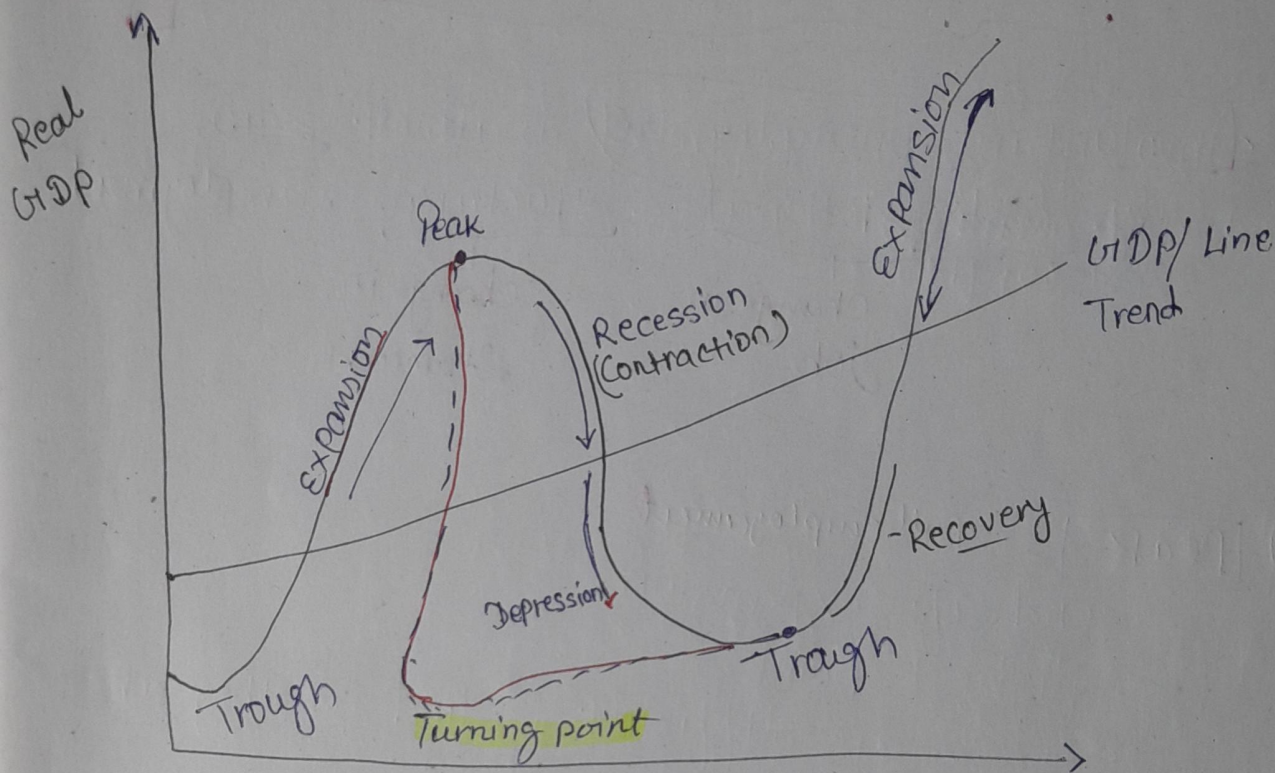 Real
GDP
Peak
Expansion
Recession
(Contraction)
Expansion
GDP/ Line
Trend
-Recovery
Depression
Trough
Trough
Turning point